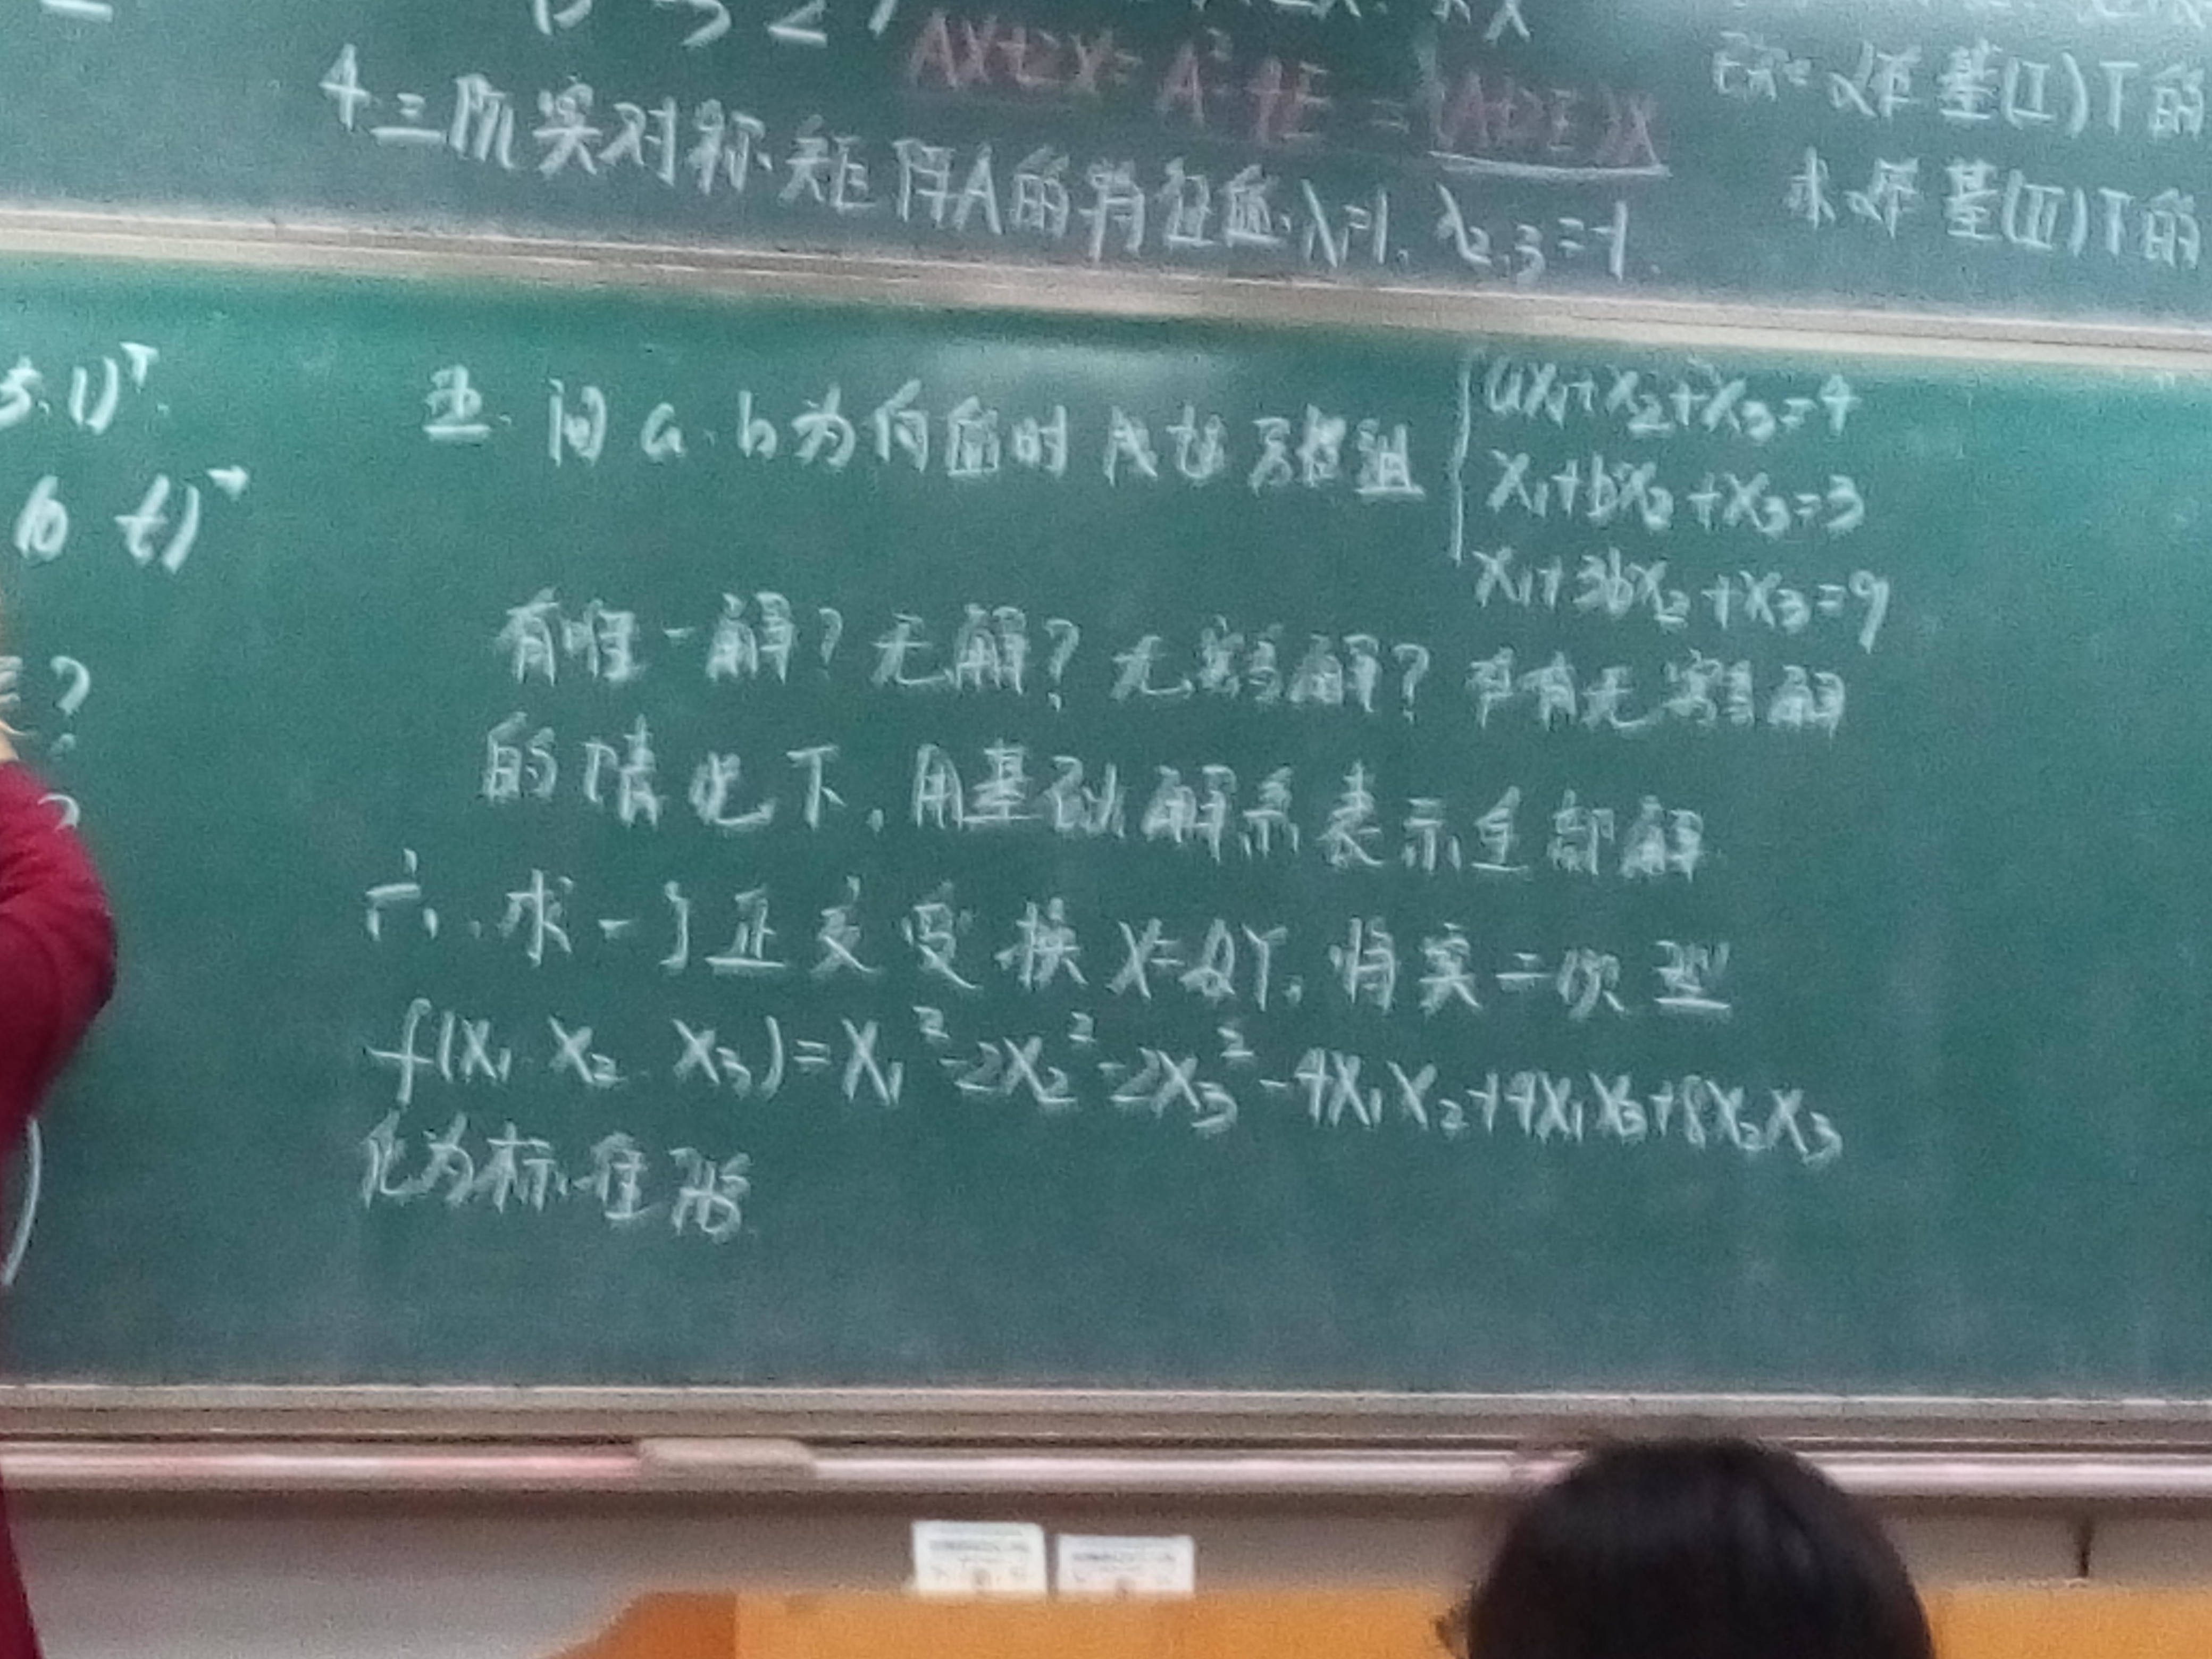 AX+2X=A²-4E=(A+2E)X
4.三阶实对称矩阵A的特征值λ=1.λ2.3=-1.
基(I)下的
求α在基(II)下的
b t)ᵀ
五.问a.b为何值时 线性方程组
ax₁+x₂+x₃=4
x₁+bx₂+x₃=3
x₁+3bx₂+x₃=9
有唯一解?无解?无穷多解?在有无穷多解
的情况下,用基础解系表示全部解
六.求一个正交变换X=QY,将实二次型
f(x₁ x₂ x₃)=x₁²-2x₂²-2x₃²-4x₁x₂+4x₁x₃+8x₂x₃
化为标准形